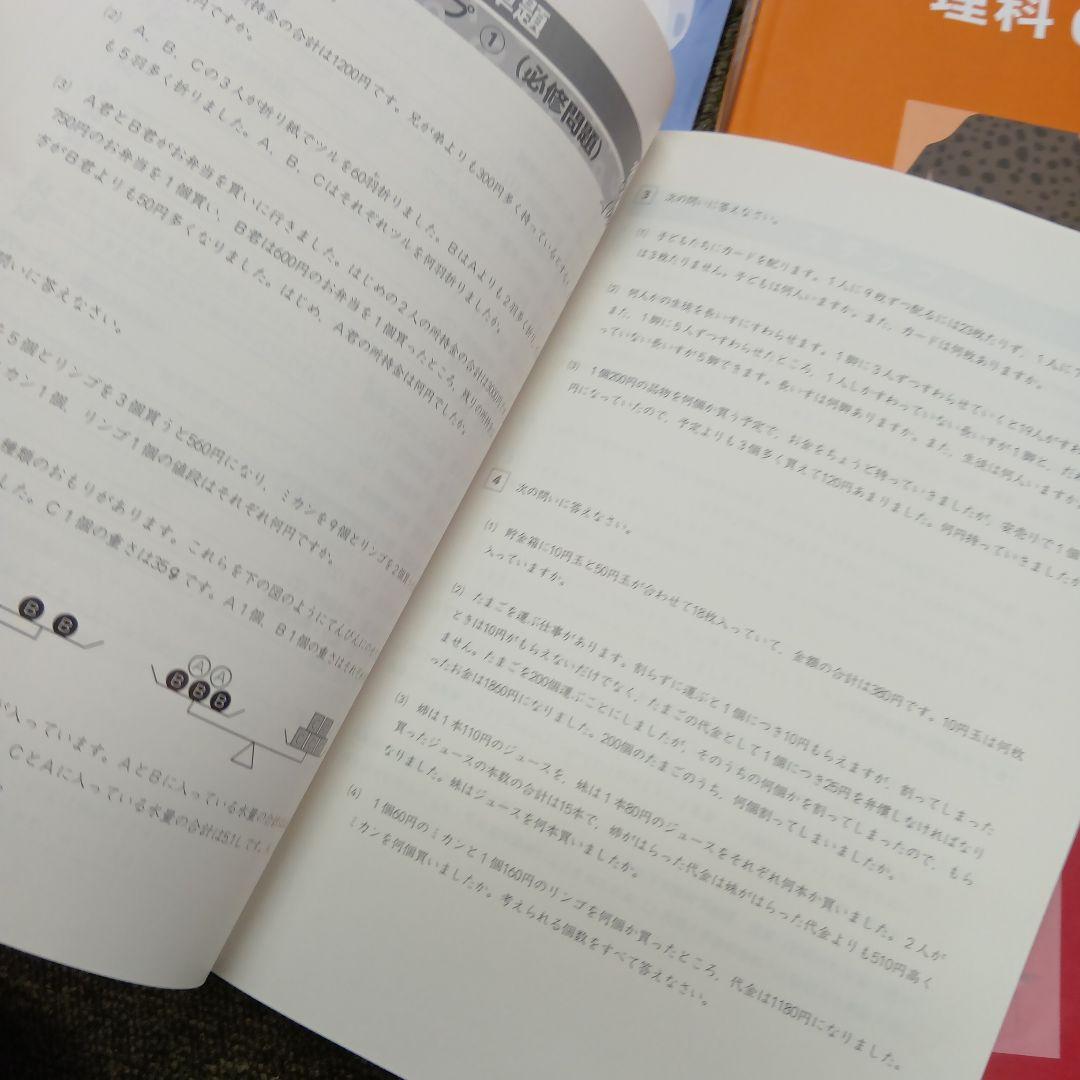 理科
準題
プ ① (必修問題)
の所持金の合計は1200円です。兄が弟よりも300円多く持っている
円ですか。
(2) A、B、Cの3人が折り紙でツルを60羽折りました。BはAよりも2羽多く折
も5羽多く折りました。A、B、Cはそれぞれツルを何羽折りましたか。
(3) A君とB君がお弁当を買いに行きました。はじめの2人の所持金の合計は3000円
750円のお弁当を1個買い、B君は600円のお弁当を1個買ったところ、残りの所持
君がB君よりも50円多くなりました。はじめ、A君の所持金は何円でしたか。
問いに答えなさい。
5個とリンゴを3個買うと560円になり、ミカンを9個とリンゴを2個買
ミカン1個、リンゴ1個の値段はそれぞれ何円ですか。
種類のおもりがあります。これらを下の図のようにてんびんに
した。C1個の重さは35gです。A1個、B1個の重さはそれぞれ
B B
A A
B B B
C
C C
が入っています。AとBに入っている水量の合計
、CとAに入っている水量の合計は51Lです。
3 次の問いに答えなさい。
(1) 子どもたちにカードを配ります。1人に9枚ずつ配るには23枚たりず、1人に7
は3枚たりません。子どもは何人いますか。また、カードは何枚ありますか。
(2) 何人かの生徒を長いすにすわらせます。1脚に3人ずつすわらせていくと19人がすわ
また、1脚に5人ずつすわらせたところ、1人しかすわっていない長いすが1脚と、だれ
っていない長いすが5脚できます。長いすは何脚ありますか。また、生徒は何人いますか
(3) 1個200円の品物を何個か買う予定で、お金をちょうど持っていきましたが、安売りで1個
円になっていたので、予定よりも3個多く買えて120円あまりました。何円持っていきましたか
4 次の問いに答えなさい。
(1) 貯金箱に10円玉と50円玉が合わせて18枚入っていて、金額の合計は380円です。10円玉は何枚
入っていますか。
(2) たまごを運ぶ仕事があります。割らずに運ぶと1個につき10円もらえますが、割ってしまった
ときは10円がもらえないだけでなく、たまごの代金として1個につき25円を弁償しなければなり
ません。たまごを200個運ぶことにしましたが、そのうちの何個かを割ってしまったので、もら
ったお金は1860円になりました。200個のたまごのうち、何個割ってしまいましたか。
(3) 姉は1本110円のジュースを、妹は1本80円のジュースをそれぞれ何本か買いました。2人が
買ったジュースの本数の合計は15本で、姉がはらった代金は妹がはらった代金よりも510円高く
なりました。妹はジュースを何本買いましたか。
(4) 1個60円のミカンと1個160円のリンゴを何個か買ったところ、代金は1180円になりました。
ミカンを何個買いましたか。考えられる個数をすべて答えなさい。